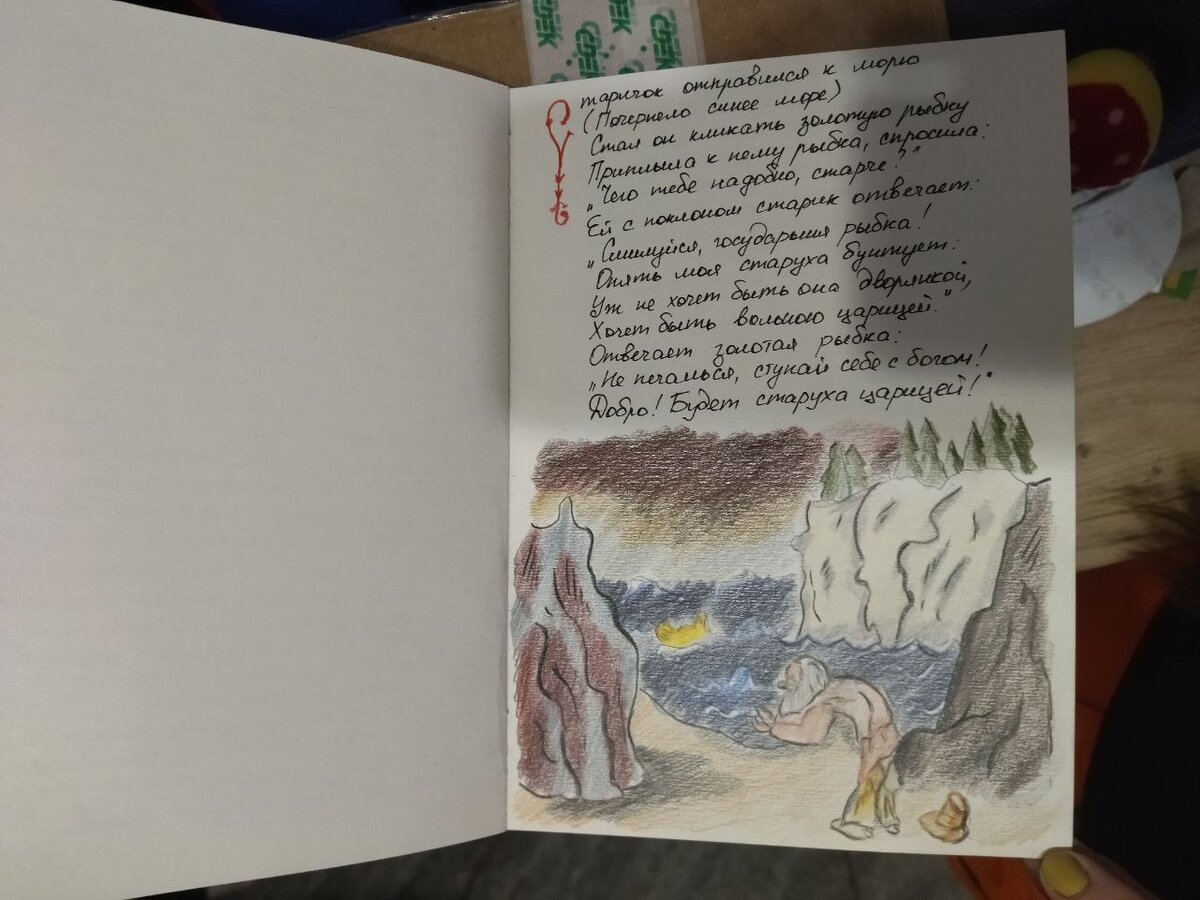 СДЭК
СДЭК
Старичок отправился к морю
(Почернело синее море)
Стал он кликать золотую рыбку
Приплыла к нему рыбка, спросила:
„Чего тебе надобно, старче?"
Ей с поклоном старик отвечает:
„Смилуйся, государыня рыбка!
Опять моя старуха бунтует:
Уж не хочет быть она дворянкой,
Хочет быть вольною царицей."
Отвечает золотая рыбка:
„Не печалься, ступай себе с богом!
Добро! Будет старуха царицей!"